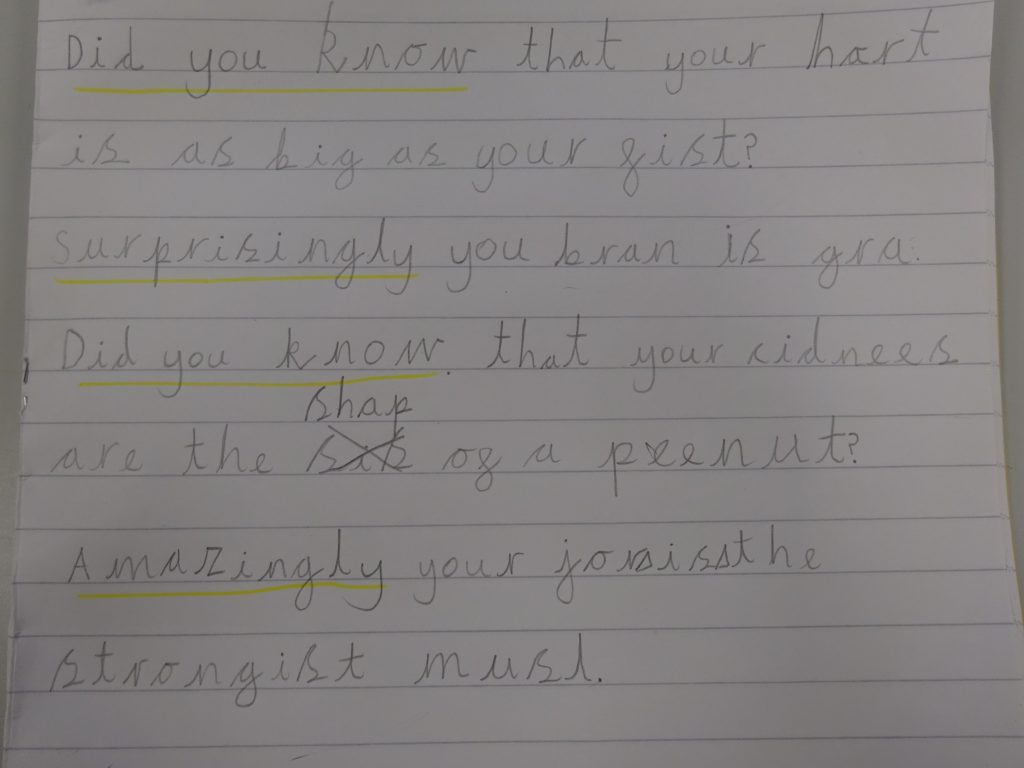 Did you know that your hart
is as big as your fist?
Surprisingly you bran is gra.
Did you know. that your cidnees
shap
are the of a peenut?
Amazingly your the
strongist musl.